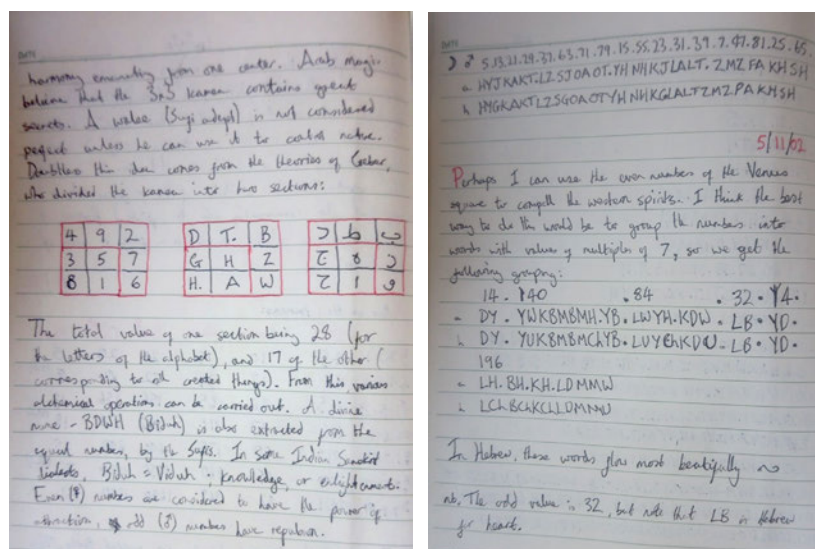 harmony emanating from one center. Arab magi-
believe that the 3x3 kamea contains great
secrets. A walee (Sufi adept) is not considered
perfect unless he can use it to control nature.
Doubtless this due comes from the theories of Geber,
who divided the kamea into two sections:
4 9 2 D T. B د ط ب
3 5 7 G H Z ج ه ز
8 1 6 H. A W ح ا و
The total value of one section being 28 (for
the letters of the alphabet), and 17 of the other (
corresponding to all created things). From this various
alchemical operations can be carried out. A divine
name - BDWH (Biduh) is also extracted from the
equal number, by the Sufis. In some Indian Sanskrit
dialects, Biduh = Viduh : knowledge, or enlightenment.
Even (♀) numbers are considered to have the power of
attraction, odd (♂) numbers have repulsion.
☽ ♂ 5.13.21.29.37.63.71.79.15.55.23.31.39.7.47.81.25.65.
a HYJKAKT.LZSJOAOT.YHNHKJLALT.ZMZFAKHSH
b HYGKAKTLZSGOAOTYHNHKGLALTZMZPAKHSH
5/11/02
Perhaps I can use the even numbers of the Venus
square to compell the western spirits. I think the best
way to do this would be to group the numbers into
words with values of multiples of 7, so we get the
following grouping:
14. 140 .84 . 32. 14.
a DY. YWKBMBMH.YB. LWYH.KDW. LB. YD.
b DY. YUKBMBMChYB. LUYChKDU. LB. YD.
196
a LH.BH.KH.LDMMW
b LChBChKChLDMMU
In Hebrew, these words flow most beautifully ~
nb. The odd value is 32, but note that LB is Hebrew
for heart.